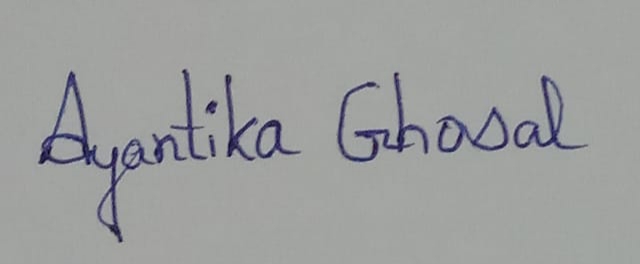 Ayantika Ghosal